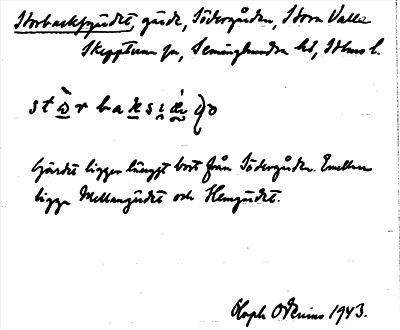 Storbacksgärdet, gärde, Södergården, Stora Valla
Skepptuna sn, Seminghundra hd, Stlms l.
Gärdet ligger längst bort från Södergården. Emellan
ligger Mellangärdet och Hemgärdet.
Oloph Odenius 1943.